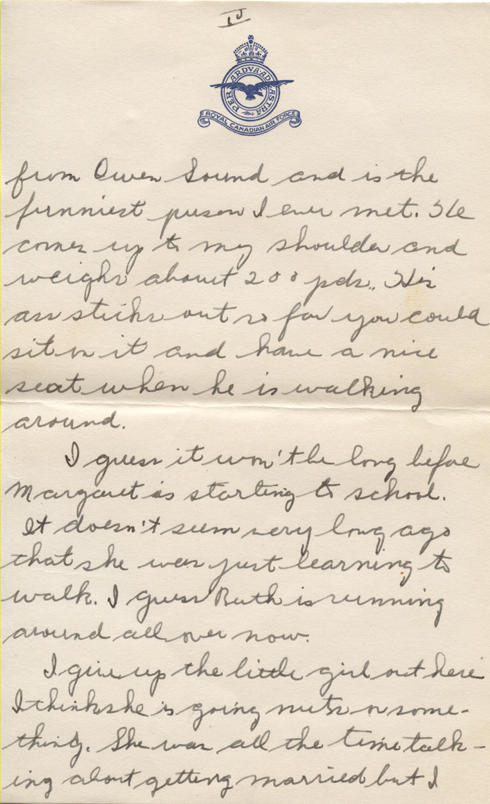 IV
PER ARDVA AD ASTRA
ROYAL CANADIAN AIR FORCE
from Owen Sound and is the
funniest person I ever met. He
comes up to my shoulder and
weighs about 200 pds. His
ass sticks out so far you could
sit on it and have a nice
seat when he is walking
around.
I guess it won't be long before
Margaret is starting to school.
It doesn't seem very long ago
that she was just learning to
walk. I guess Ruth is running
around all over now.
I give up the little girl out here
I think she is going nuts or some-
thing. She was all the time talk-
ing about getting married but I